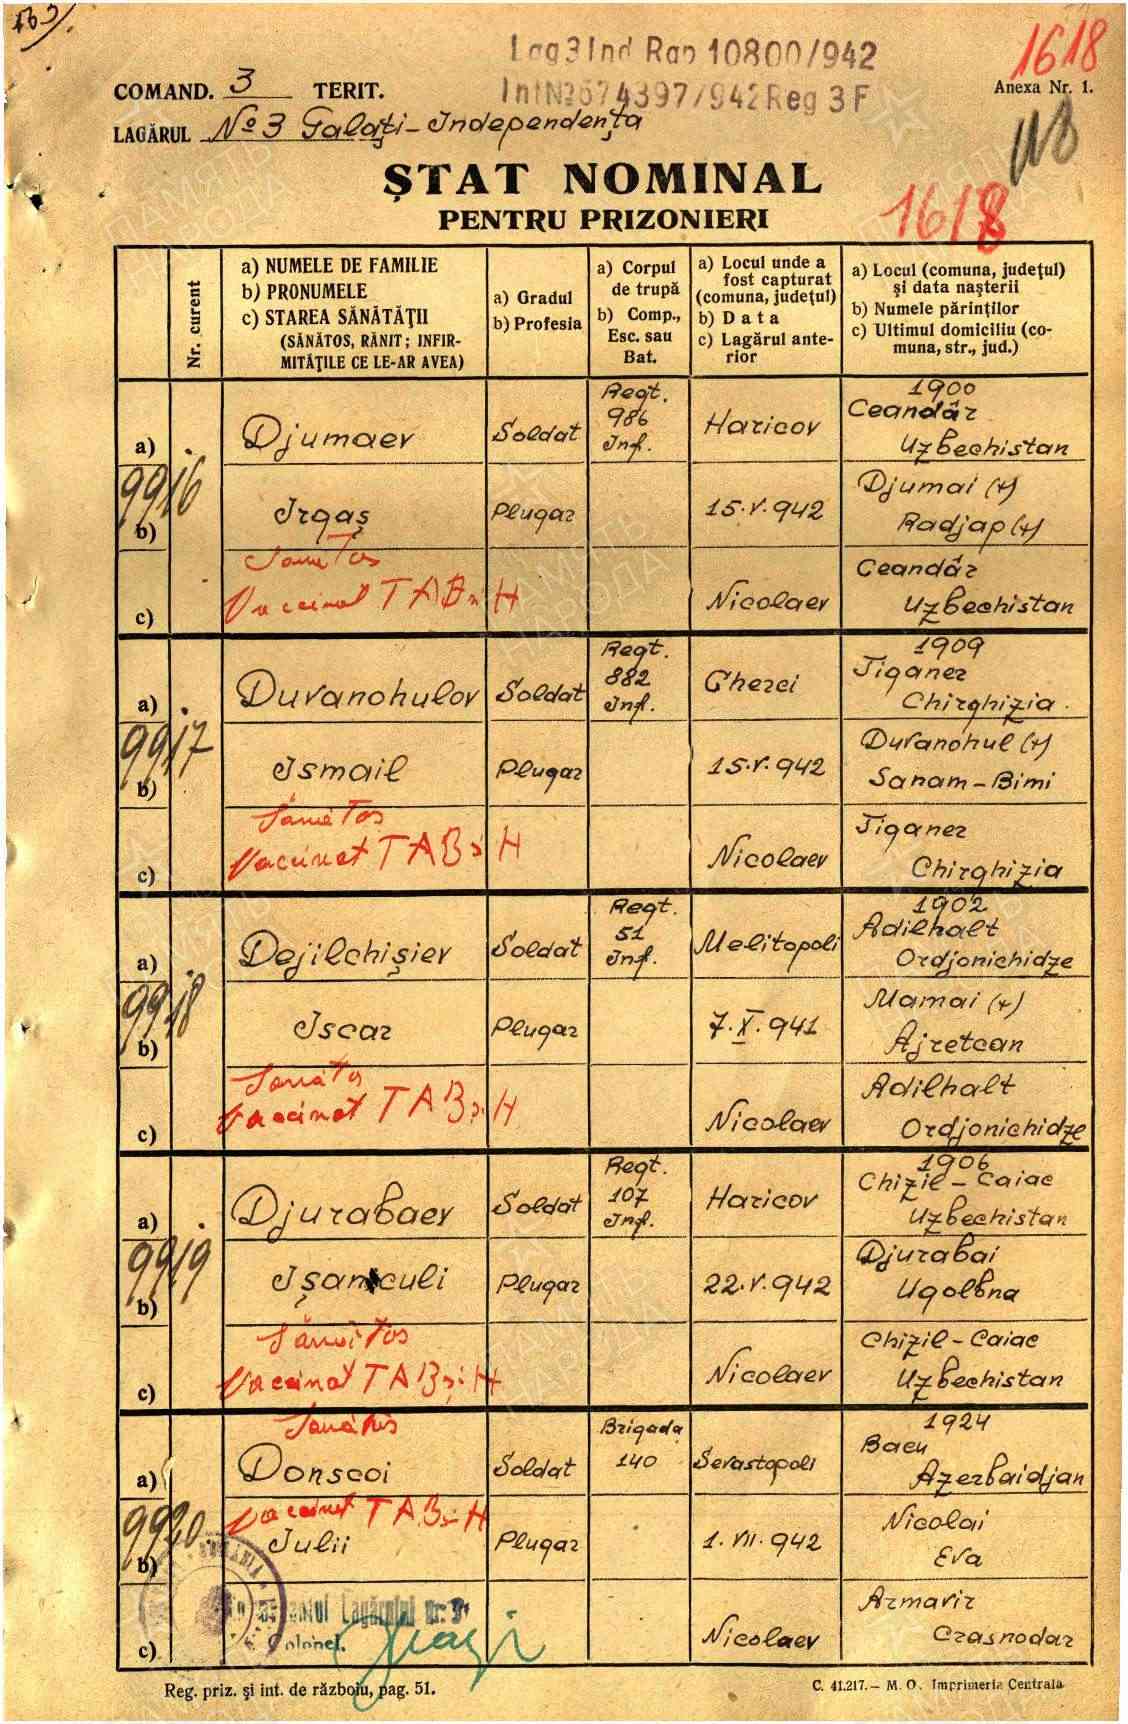 163
Lag 3 Ind Rap 10800/942
Int № 674397/942 Reg 3 F
1618
COMAND. 3 TERIT.
Anexa Nr. 1.
LAGĂRUL No 3 Galaţi-Independenţa
118
ŞTAT NOMINAL
PENTRU PRIZONIERI
1618
Nr. curent
a) NUMELE DE FAMILIE
b) PRONUMELE
c) STAREA SĂNĂTĂŢII
(SĂNĂTOS, RĂNIT; INFIR-
MITĂŢILE CE LE-AR AVEA)
a) Gradul
b) Profesia
a) Corpul
de trupă
b) Comp.,
Esc. sau
Bat.
a) Locul unde a
fost capturat
(comuna, judeţul)
b) Data
c) Lagărul ante-
rior
a) Locul (comuna, judeţul)
şi data naşterii
b) Numele părinţilor
c) Ultimul domiciliu (co-
muna, str., jud.)
9916
a)
Djumaev
Soldat
Regt.
986
Inf.
Haricov
1900
Ceandâr
Uzbechistan
b)
Irgaş
Plugar
15.V.942
Djumai (+)
Radjap (+)
c)
Sanatos
Vaccinat TAB şi H
Nicolaev
Ceandâr
Uzbechistan
9917
a)
Duvanohulov
Soldat
Regt.
882
Inf.
Cherci
1909
Tiganez
Chirghizia.
b)
Ismail
Plugar
15.V.942
Duvanohul (+)
Sanam-Bimi
c)
Sănătos
Vaccinat TAB şi H
Nicolaev
Tiganez
Chirghizia
9918
a)
Dejilchişiev
Soldat
Regt.
51
Inf.
Melitopoli
1902
Adilhalt
Ordjonichidze
b)
Iscar
Plugar
7.X.941
Mamai (+)
Ajretcan
c)
Sanătos
Vaccinat TAB şi H
Nicolaev
Adilhalt
Ordjonichidze
9919
a)
Djurabaev
Soldat
Regt.
107
Inf.
Haricov
1906
Chizil-Caiac
Uzbechistan
b)
Işanculi
Plugar
22.V.942
Djurabai
Ugolbna
c)
Sănătos
Vaccinat TAB şi H
Nicolaev
Chizil-Caiac
Uzbechistan
9920
Sanătos
a)
Donscoi
Soldat
Brigada
140
Sevastopoli
1924
Bacu
Azerbaidjan
Vaccinat TAB şi H
b)
Iulii
Plugar
1.VII.942
Nicolai
Eva
c)
Lagărului nr. 3
Colonel.
Nicolaev
Armavir
Crasnodar
ROMÂNIA
Reg. priz. şi int. de războiu, pag. 51.
C. 41.217.— M. O. Imprimeria Centrala
ПАМЯТЬ
НАРОДА